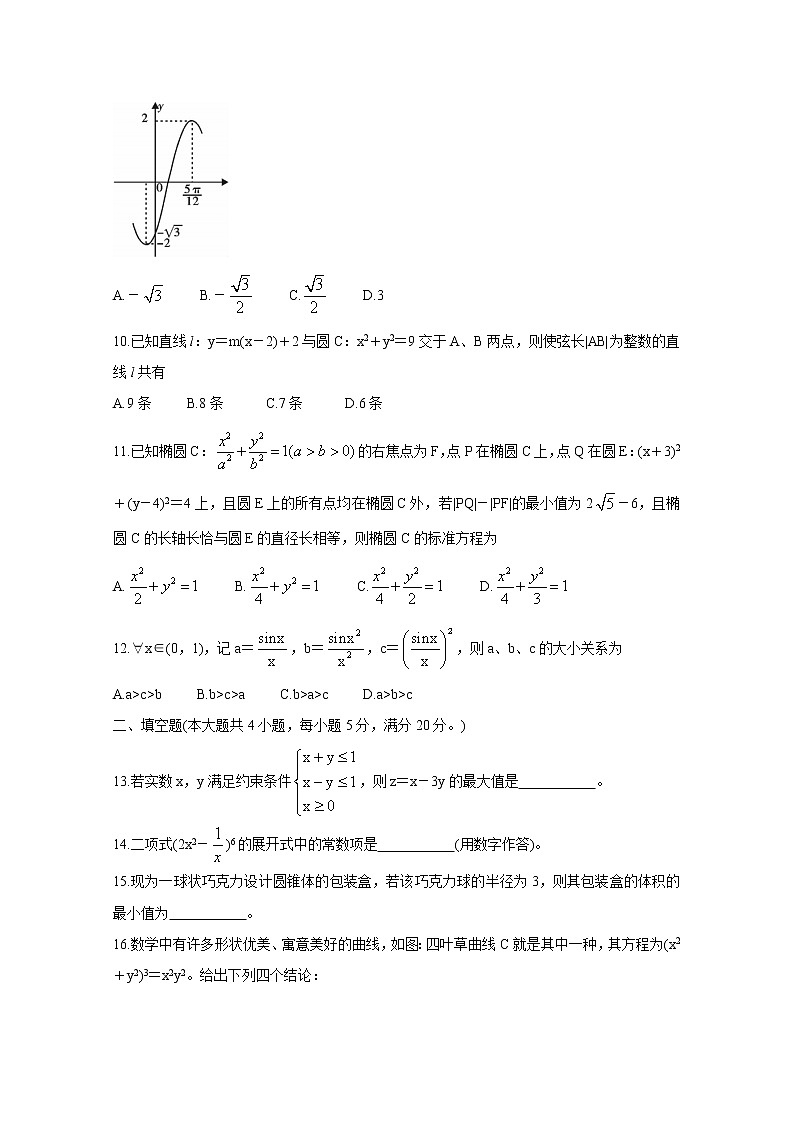 y
2
0
5π/12
-√3
-2
A.－√3 B.－√3/2 C.√3/2 D.3
10.已知直线l：y＝m(x－2)＋2与圆C：x²＋y²＝9交于A、B两点，则使弦长|AB|为整数的直
线l共有
A.9条 B.8条 C.7条 D.6条
11.已知椭圆C：x²/a²+y²/b²=1(a>b>0)的右焦点为F，点P在椭圆C上，点Q在圆E：(x＋3)²
＋(y－4)²＝4上，且圆E上的所有点均在椭圆C外，若|PQ|－|PF|的最小值为2√5－6，且椭
圆C的长轴长恰与圆E的直径长相等，则椭圆C的标准方程为
A.x²/2+y²=1 B.x²/4+y²=1 C.x²/4+y²/2=1 D.x²/4+y²/3=1
12.∀x∈(0，1)，记a＝sinx/x，b＝sinx²/x²，c＝(sinx/x)²，则a、b、c的大小关系为
A.a>c>b B.b>c>a C.b>a>c D.a>b>c
二、填空题(本大题共4小题，每小题5分，满分20分。)
13.若实数x，y满足约束条件{x+y≤1 x−y≤1 x≥0，则z＝x－3y的最大值是___________。
14.二项式(2x²－1/x)⁶的展开式中的常数项是___________(用数字作答)。
15.现为一球状巧克力设计圆锥体的包装盒，若该巧克力球的半径为3，则其包装盒的体积的
最小值为___________。
16.数学中有许多形状优美、寓意美好的曲线，如图：四叶草曲线C就是其中一种，其方程为(x²
＋y²)³＝x²y²。给出下列四个结论：